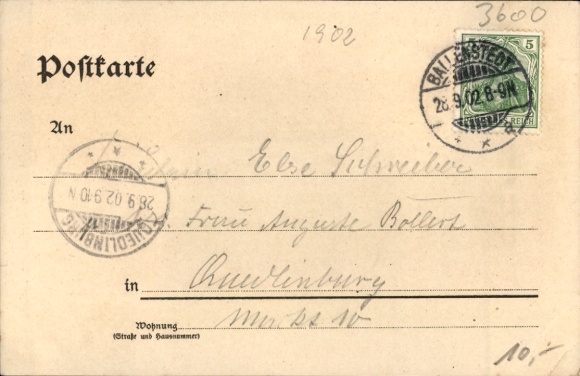 3600
1902
Postkarte
5
REICH
BALLENSTEDT
28.9.02.8-9N
An
QUEDLINBURG
28.9.02.9-10N
Else Schreiber
Frau Auguste Bollert
in Quedlinburg
Wohnung
(Straße und Hausnummer)
Markt 10
10,-